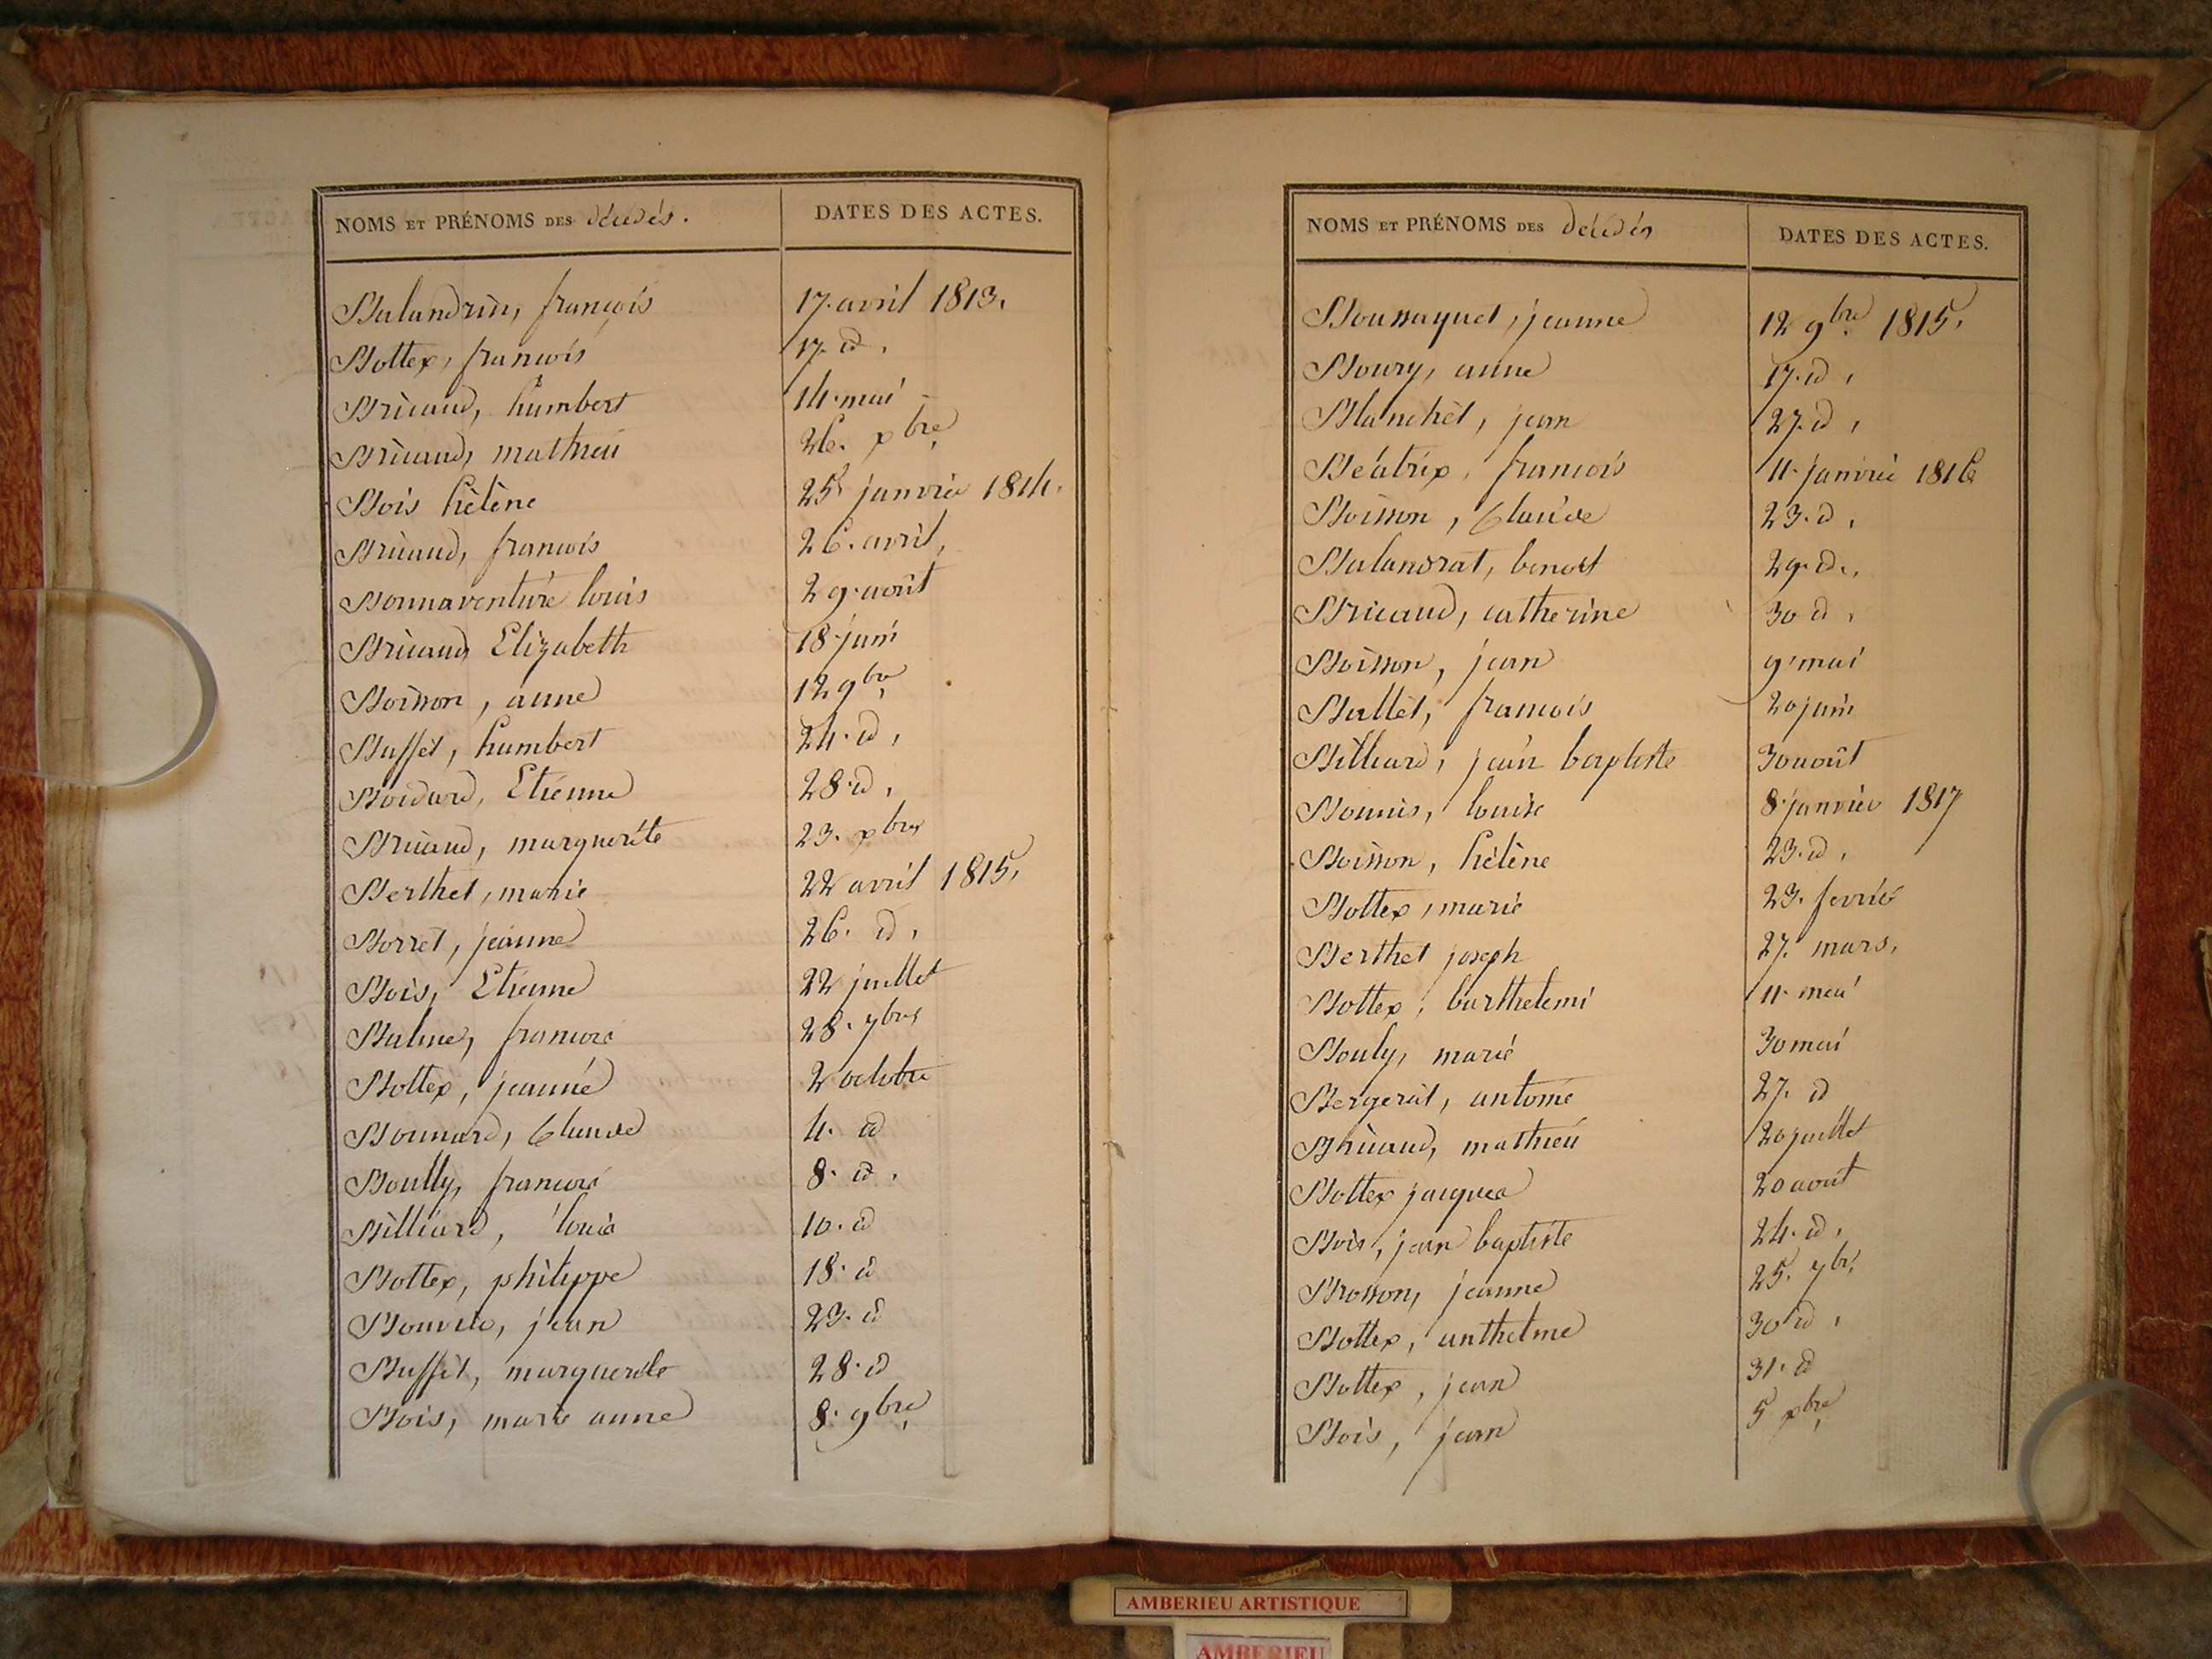 NOMS ET PRÉNOMS DES décédés.
DATES DES ACTES.
Balandrin, françois 17. avril 1813.
Bottex, francois 17. id.
Bricaud, humbert 14. mai
Bricaud, mathieu 26. xbre
Bois hélène 25 janvier 1814.
Bricaud, francois 26. avril,
Bonnaventure louis 29. août
Bricaud, Elizabeth 18 juin
Boisson, anne 12 9bre
Buffet, humbert 24. id,
Boidard, Etienne 28. id,
Bricaud, marguerite 23. xbre
Berthet, marie 22 avril 1815,
Borret, jeanne 26. id,
Bois, Etienne 22 juillet
Balme, francois 28. 7bre
Bottex, jeanne 2 octobre
Bonnard, Claude 4. id
Boully, francois 8. id,
Billiard, louis 10. id
Bottex, philippe 18. id
Bouvier, jean 23. id
Buffet, marguerite 28. id
Bois, marie anne 8. 9bre
NOMS ET PRÉNOMS DES décédés
DATES DES ACTES.
Boussaquet, jeanne 12 9bre 1815,
Boury, anne 17. id,
Blanchet, jean 27. id,
Béatrix, francois 11. janvier 1816
Boisson, Claude 23. id,
Balandrat, benoit 29. id,
Bricaud, catherine 30 id,
Boisson, jean 9. mai
Ballet, francois 20 juin
Billiard, jean baptiste 30 août
Bonnis, louise 8. janvier 1817
Boisson, hélène 23. id,
Bottex, marie 23. fevrier
Berthet joseph 27. mars,
Bottex, barthelemi 11. mai
Bouly, marie 30 mai
Bergerat, antome 27. id
Bricaud, mathieu 20 juillet
Bottex jacques 20 août
Bois, jean baptiste 24. id,
Brosson, jeanne 25. 7bre
Bottex, anthelme 30 id,
Bottex, jean 31. id
Bois, jean 5 xbre
AMBERIEU ARTISTIQUE
AMBERIEU